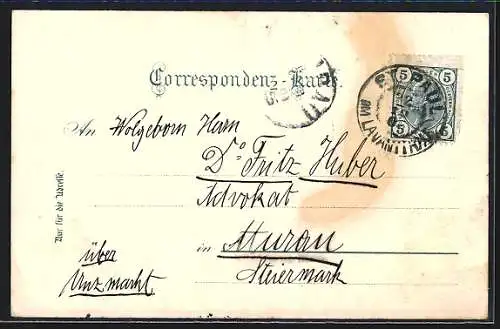 Correspondenz-Karte.
5 5
5 5
ST. PAUL
IM LAVANTTHAL
An Wolgeborn Herrn
Dr Fritz Huber
Advokat
in Murau
Steiermark
über
Unzmarkt.
Nur für die Adresse.